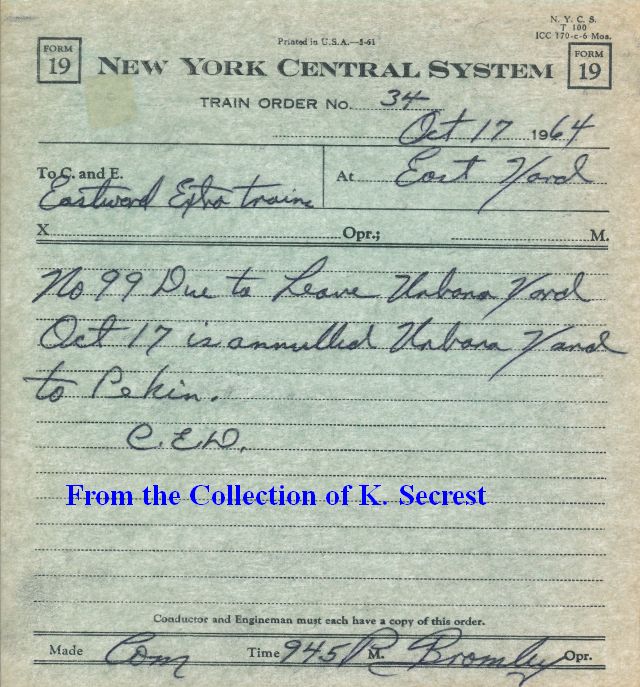 N. Y. C. S.
T 100
ICC 170-c-6 Mos.
Printed in U.S.A.—5-61
FORM 19
NEW YORK CENTRAL SYSTEM
FORM 19
TRAIN ORDER No. 34
Oct 17 1964
To C. and E. At East Yard
Eastward Extra trains
X Opr.; M.
No 99 Due to Leave Urbana Yard
Oct 17 is annulled Urbana Yard
to Pekin.
C.E.D.
From the Collection of K. Secrest
Conductor and Engineman must each have a copy of this order.
Made Com Time 945 P M. Bromley Opr.